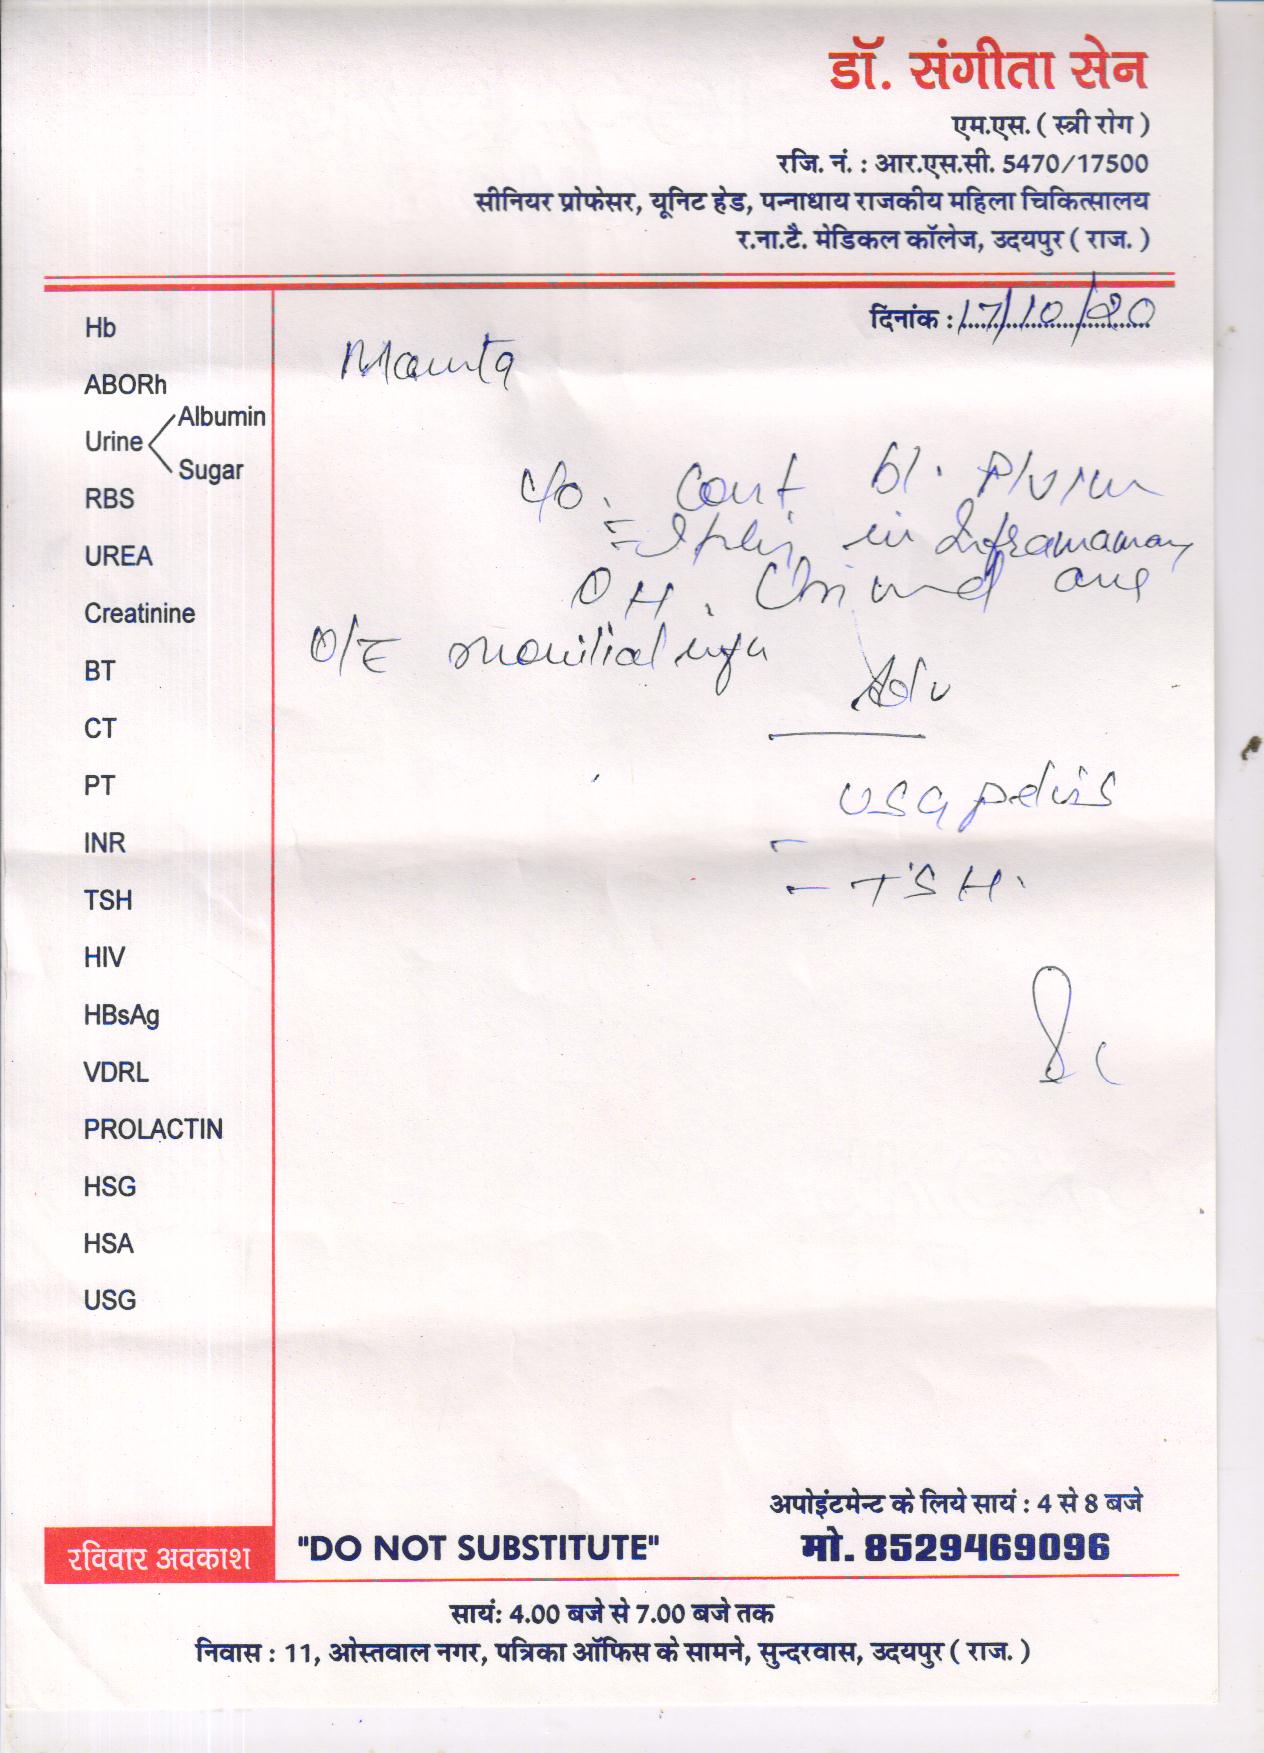 डॉ. संगीता सेन
एम.एस. ( स्त्री रोग )
रजि. नं. : आर.एस.सी. 5470/17500
सीनियर प्रोफेसर, यूनिट हेड, पन्नाधाय राजकीय महिला चिकित्सालय
र.ना.टै. मेडिकल कॉलेज, उदयपुर ( राज. )
दिनांक : 17/10/20
Mamta
c/o. Cont bl. P/V
in Inframamary
OH. and
O/E monilial infn
Adv
USG pelvis
- TSH.
Hb
ABORh
Urine
Albumin
Sugar
RBS
UREA
Creatinine
BT
CT
PT
INR
TSH
HIV
HBsAg
VDRL
PROLACTIN
HSG
HSA
USG
अपोइंटमेन्ट के लिये सायं : 4 से 8 बजे
रविवार अवकाश
"DO NOT SUBSTITUTE"
मो. 8529469096
सायं: 4.00 बजे से 7.00 बजे तक
निवास : 11, ओस्तवाल नगर, पत्रिका ऑफिस के सामने, सुन्दरवास, उदयपुर ( राज. )